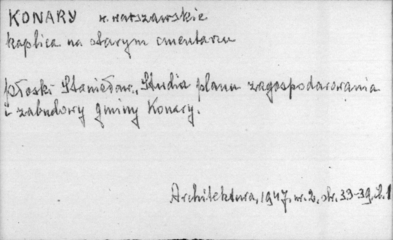 KONARY w. warszawskie
kaplica na starym cmentarzu
Płoski Stanisław, Studia planu zagospodarowania
i zabudowy gminy Konary.
Architektura, 1947, nr. 2, str. 33-39, il. 1